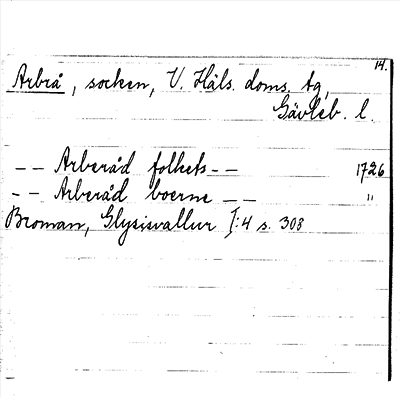 14.
Arbrå, socken, V. Häls. doms. tg,
Gävleb. l.
-- Arberåd folkets -- 1726
-- Arberåd boerne -- "
Broman, Glysisvallur I:4 s. 308